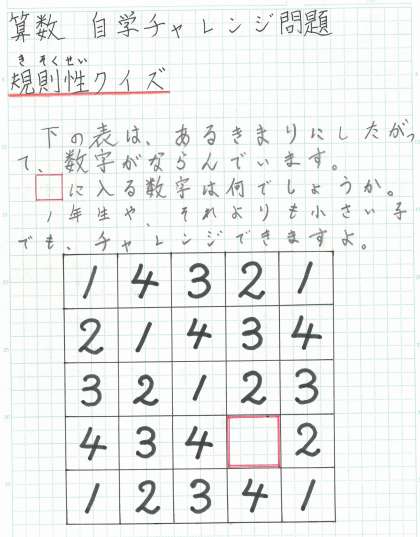 算数 自学チャレンジ問題
きそくせい
規則性クイズ
下の表は、あるきまりにしたがっ
て、数字がならんでいます。
に入る数字は何でしょうか。
1年生や、それより小さい子
でも、チャレンジできますよ。
1 4 3 2 1
2 1 4 3 4
3 2 1 2 3
4 3 4 2
1 2 3 4 1